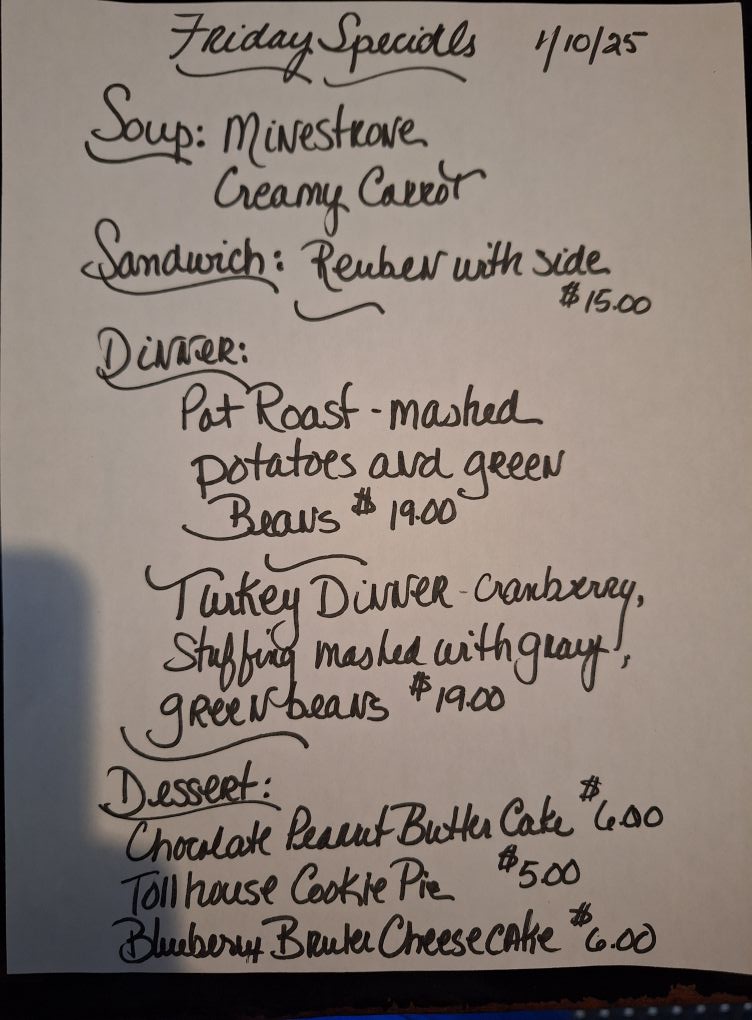 Friday Specials 1/10/25
Soup: Minestrone
Creamy Carrot
Sandwich: Reuben with side
$15.00
Dinner:
Pot Roast - mashed
potatoes and green
Beans $19.00
Turkey Dinner - cranberry,
Stuffing mashed with gravy,
green beans $19.00
Dessert:
Chocolate Peanut Butter Cake $6.00
Tollhouse Cookie Pie $5.00
Blueberry Cheesecake $6.00